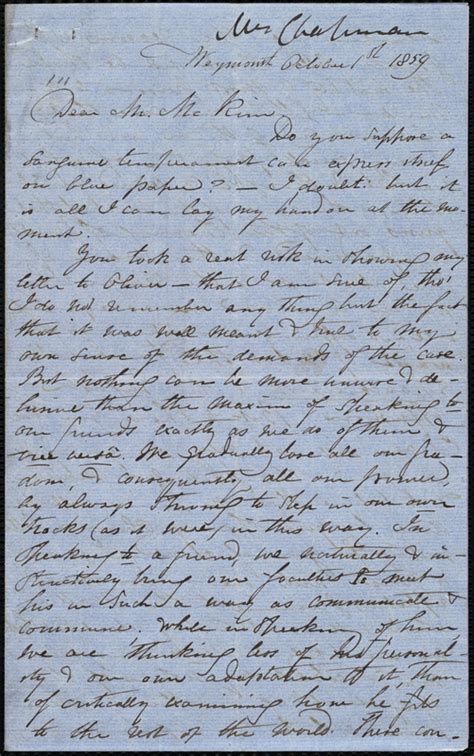 Mrs Chapman
Weymouth October 1st 1859
Dear Mr. Mc Kim,
Do you suppose a
sanguine temperament can express itself
on blue paper? — I doubt: but it
is all I can lay my hand on at the mo-
ment.
You took a real risk in showing my
letter to Oliver — that I am sure of, tho'
I do not remember any thing but the fact
that it was well meant & true to my
own sense of the demands of the case.
But nothing can be more unwise & de-
lusive than the maxim of speaking to
our friends exactly as we do of them &
vice versâ. We gradually lose all our free-
dom, & consequently all our power,
by always striving to step in our own
tracks (as it were) in this way. In
speaking to a friend, we naturally & in-
stinctively bring our faculties to meet
his in such a way as communicate &
commune, while in speaking of him,
we are thinking less of personal-
ity & our own adaptation to it, than
of critically examining how he fits
to the rest of the world. These con-